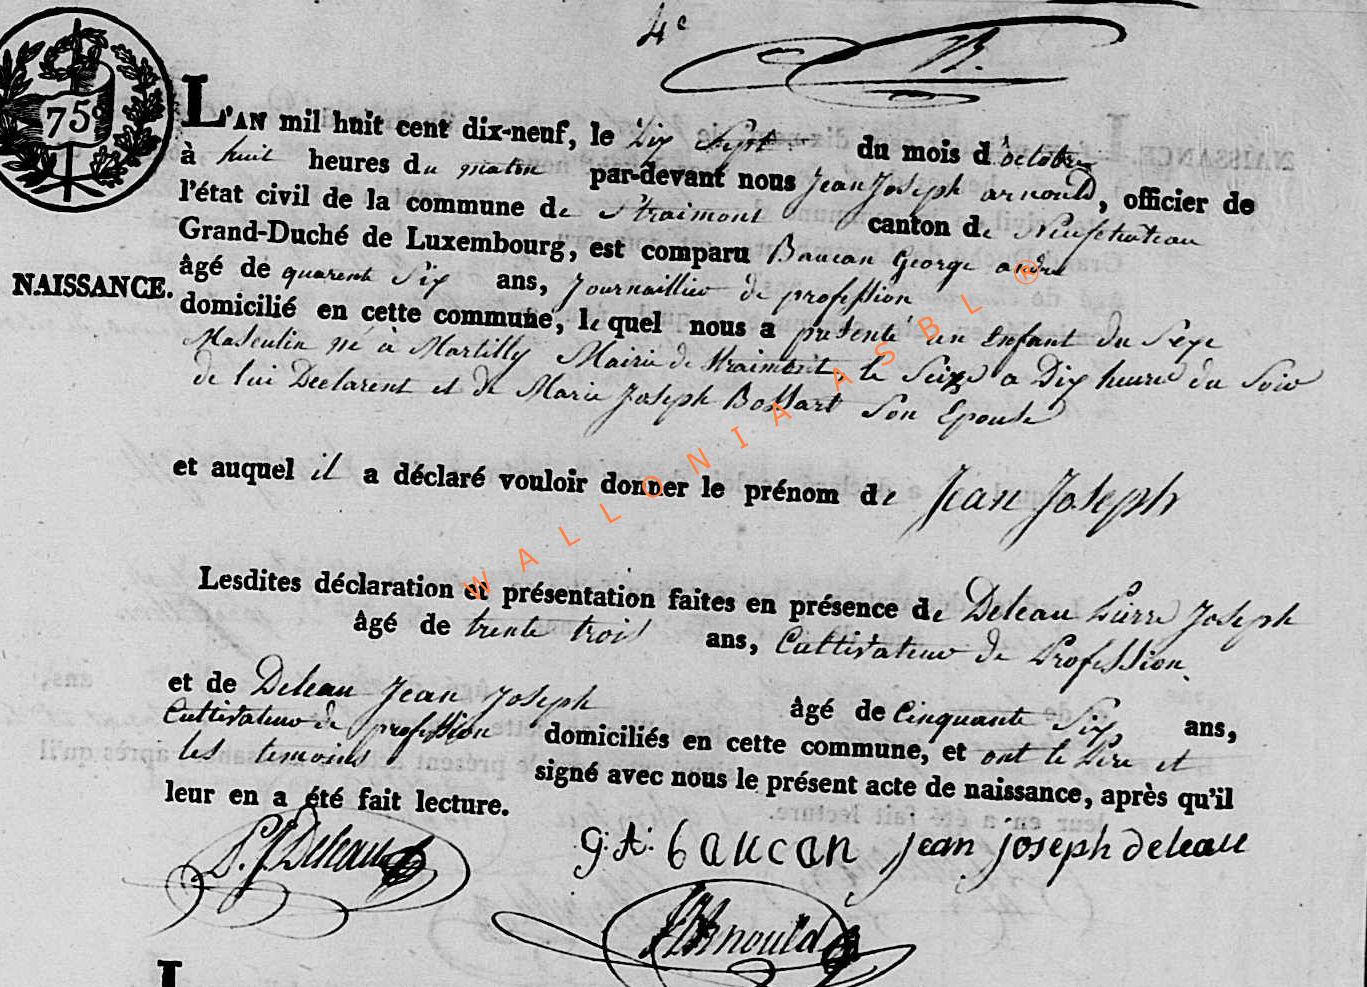 4e
B.
75c
L'AN mil huit cent dix-neuf, le Dix Sept du mois d'octobre
à huit heures du matin par-devant nous Jean Joseph arnould, officier de
l'état civil de la commune de Straimont canton de Neufchateau
Grand-Duché de Luxembourg, est comparu Baucan George andre
NAISSANCE. âgé de quarente Six ans, Journaillier de profession
domicilié en cette commune, lequel nous a présenté un Enfant du Sexe
Masculin né à Martilly Mairie de Straimont, le Seize a Dix heure du Soir
de lui Declarent et de Marie Joseph Bossart Son Epouse
et auquel il a déclaré vouloir donner le prénom de Jean Joseph
Lesdites déclaration et présentation faites en présence de Deleau Pierre Joseph
âgé de trente trois ans, Cultivateur de Profession
et de Deleau Jean Joseph âgé de Cinquante Six ans,
Cultivateur de profession domiciliés en cette commune, et ont le Pere et
les temoins signé avec nous le présent acte de naissance, après qu'il
leur en a été fait lecture.
P. J Deleau g: A: baucan jean joseph deleau
JJArnould
L
WALLONIA ASBL ®